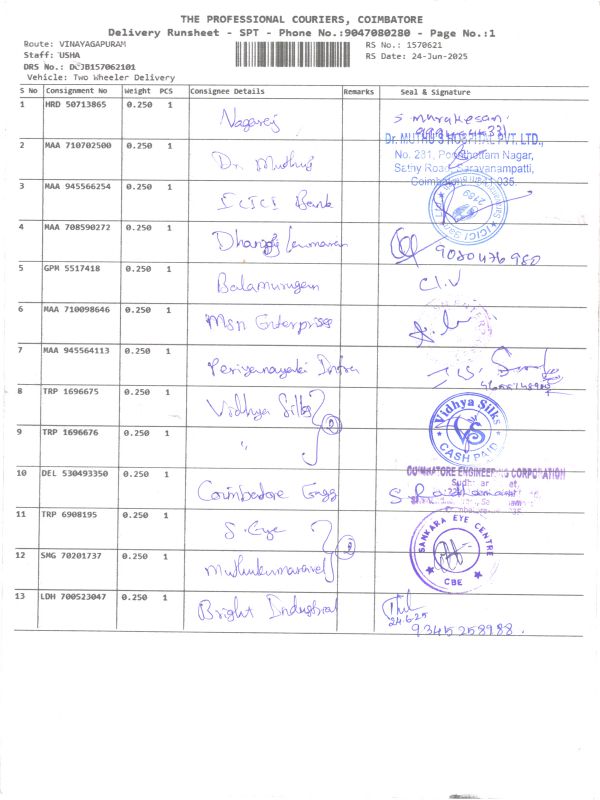 THE PROFESSIONAL COURIERS, COIMBATORE
Delivery Runsheet - SPT - Phone No.:9047080280 - Page No.:1
Route: VINAYAGAPURAM RS No.: 1570621
Staff: USHA RS Date: 24-Jun-2025
DRS No.: DCJB157062101
Vehicle: Two Wheeler Delivery
S No Consignment No Weight PCS Consignee Details Remarks Seal & Signature
1 HRD 50713865 0.250 1 Nagaraj S. Murakesan.
Dr. MUTHU'S HOSPITAL PVT. LTD.,
2 MAA 710702500 0.250 1 Dr. Muthus No. 231, Poo Nagar,
Sathy Road, Saravanampatti,
Coimbatore 035.
3 MAA 945566254 0.250 1 ICICI Bank ICICI
4 MAA 708590272 0.250 1 9080476980
5 GPM 5517418 0.250 1 Balamurugan C.I.V
6 MAA 710098646 0.250 1 Msn Enterprises
7 MAA 945564113 0.250 1 Periyanayaki Infra
8 TRP 1696675 0.250 1 Vidhya Silks 2 Vidhya Silks
VS
9 TRP 1696676 0.250 1 " CASH PAID
10 DEL 530493350 0.250 1 Coimbatore Engg COIMBATORE ENGINEERING CORPORATION
11 TRP 6908195 0.250 1 S. Eye 2 SANKARA EYE CENTRE
12 SMG 70201737 0.250 1 Muthukumaravel CBE
13 LDH 700523047 0.250 1 Bright Industrial
24-6-25
9345258988.